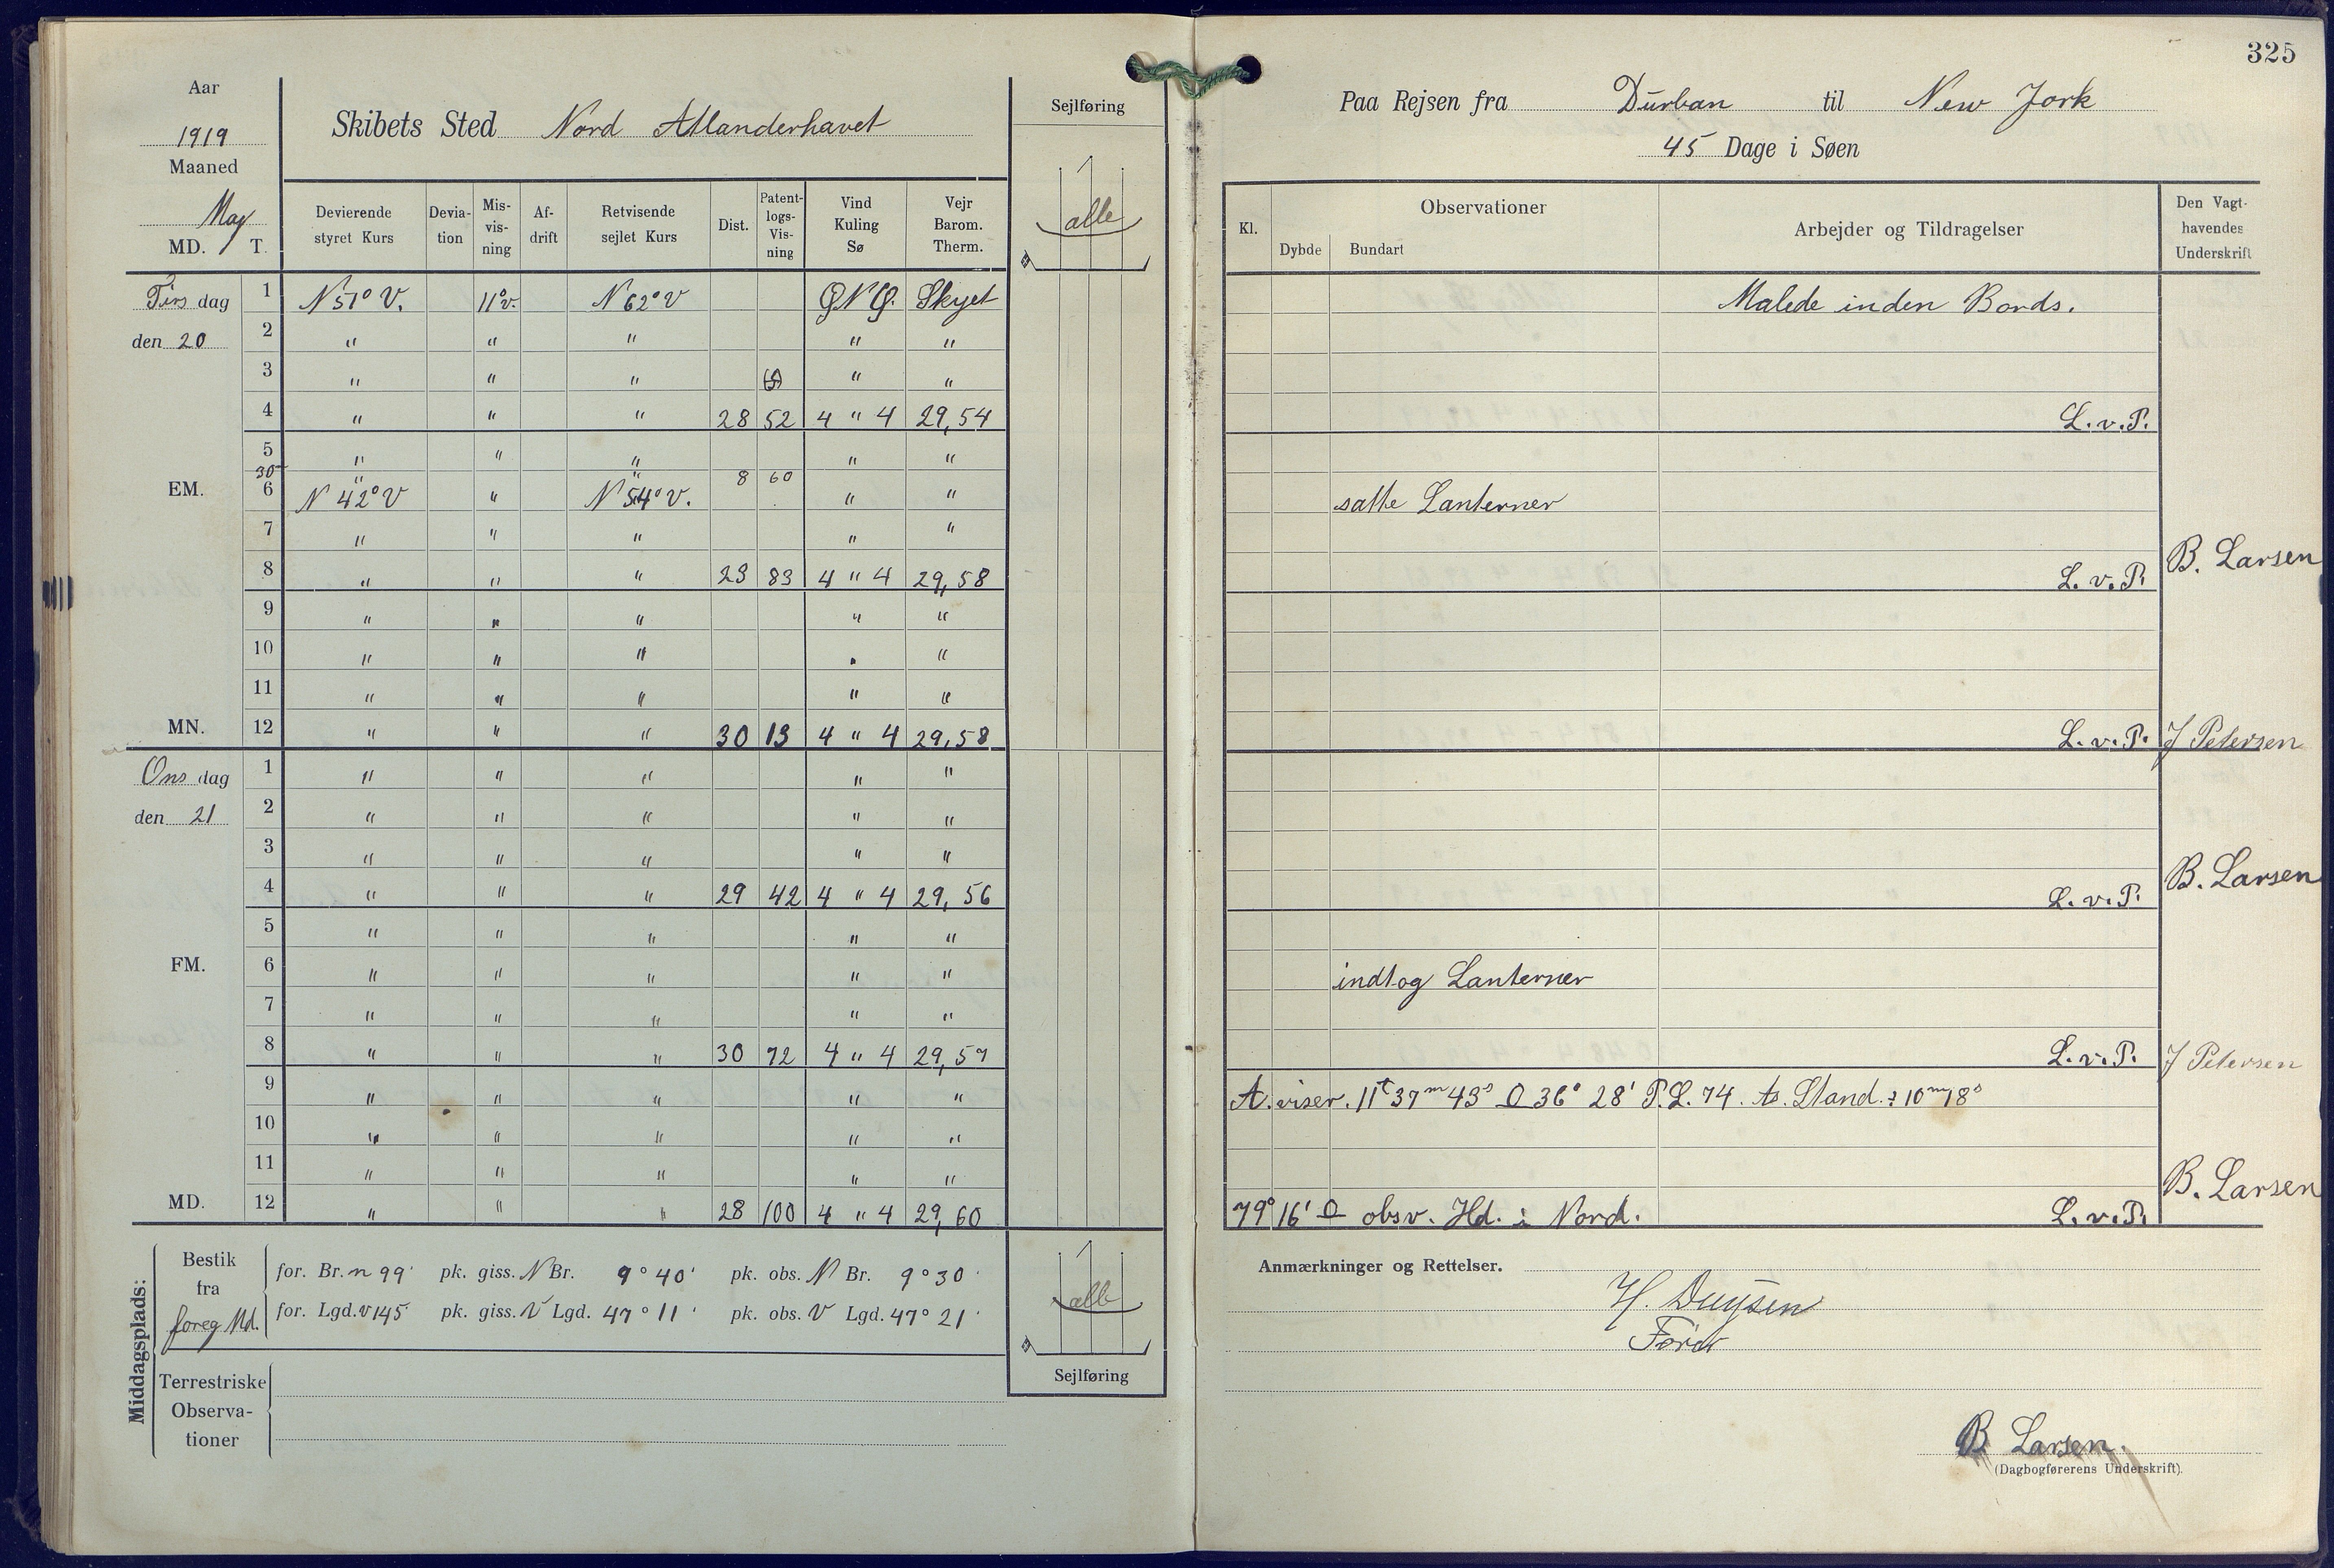 325
Aar
1919
Maaned
May
MD. T.
Skibets Sted Nord Atlanderhavet
Sejlføring
alle
Paa Rejsen fra Durban til New Jork
45 Dage i Søen
Devierende styret Kurs
Devia-tion
Mis-vis-ning
Af-drift
Retvisende sejlet Kurs
Dist.
Patent-logs-Vis-ning
Vind Kuling Sø
Vejr Barom. Therm.
Kl.
Observationer
Dybde Bundart
Arbejder og Tildragelser
Den Vagt-havendes Underskrift
Tirsdag 1 N 51° V. 11°v. N 62° V Ø N Ø. Skyet Malede inden Bords.
den 20 2 " " " " "
3 " " " " "
4 " " " 28 52 4 " 4 29,54 L.v.P.
5 " " " " "
30 " " 8 60
EM. 6 N 42° V " N 54° V. " " satte Lanterner
7 " " " " "
8 " " " 23 83 4 " 4 29,58 L.v.P. B. Larsen
9 " " " " "
10 " " " " "
11 " " " " "
MN. 12 " " " 30 13 4 " 4 29,58 L.v.P. J Petersen
Onsdag 1 " " " " "
den 21 2 " " " " "
3 " " " " "
4 " " " 29 42 4 " 4 29,56 L.v.P. B. Larsen
5 " " " " "
FM. 6 " " " " " indtog Lanterner
7 " " " " "
8 " " " 30 72 4 " 4 29,57 L.v.P. J Petersen
9 " " " " " A. viser. 11t 37m 43s O 36° 28' P.L. 74. As. Stand. ÷ 10m 18s
10 " " " " "
11 " " " " "
MD. 12 " " " 28 100 4 " 4 29,60 79° 16' O obsv. Hd. i Nord. L.v.P. B. Larsen
Middagsplads:
Bestik fra foreg Md.
for. Br. n 99' pk. giss. N Br. 9° 40' pk. obs. N Br. 9° 30'
for. Lgd. V 145' pk. giss. V Lgd. 47° 11' pk. obs. V Lgd. 47° 21'
Terrestriske Observa-tioner
alle
Sejlføring
Anmærkninger og Rettelser.
H. Duysen
Fører
B Larsen.
(Dagbogførerens Underskrift).